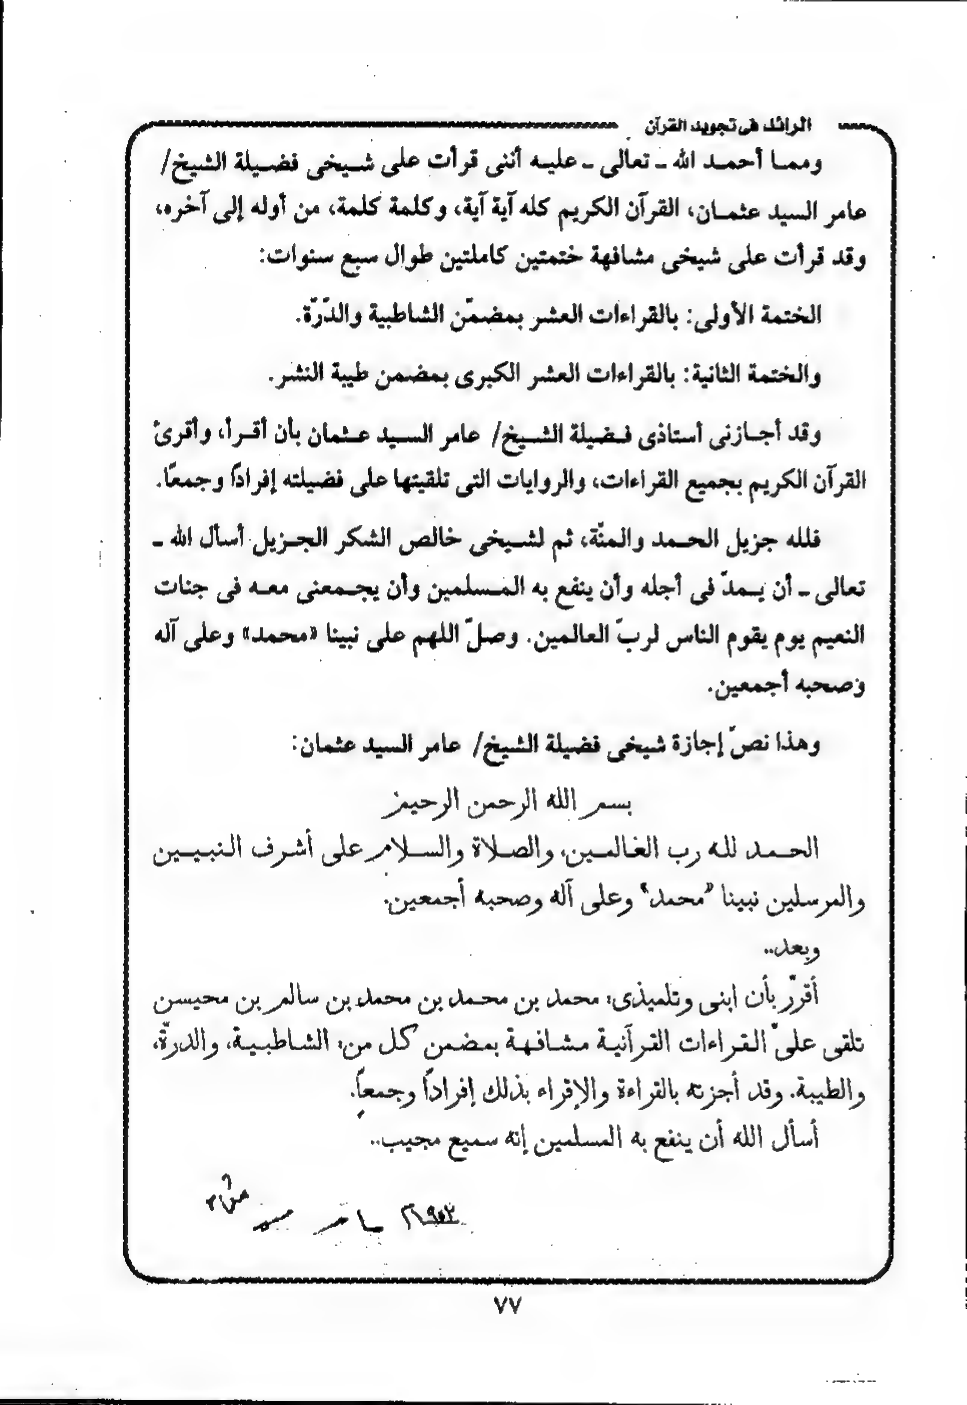 الرائد فى تجويد القرآن
ومما أحمد الله ـ تعالى ـ عليه أننى قرأت على شيخى فضيلة الشيخ/
عامر السيد عثمان، القرآن الكريم كله آية آية، وكلمة كلمة، من أوله إلى آخره،
وقد قرأت على شيخى مشافهة ختمتين كاملتين طوال سبع سنوات:
الختمة الأولى: بالقراءات العشر بمضمّن الشاطبية والدّرّة.
والختمة الثانية: بالقراءات العشر الكبرى بمضمن طيبة النشر.
وقد أجازنى أستاذى فضيلة الشيخ/ عامر السيد عثمان بأن أقرأ، وأقرئ
القرآن الكريم بجميع القراءات، والروايات التى تلقيتها على فضيلته إفرادًا وجمعًا.
فلله جزيل الحمد والمنّة، ثم لشيخى خالص الشكر الجزيل أسأل الله ـ
تعالى ـ أن يمدّ فى أجله وأن ينفع به المسلمين وأن يجمعنى معه فى جنات
النعيم يوم يقوم الناس لربّ العالمين. وصلّ اللهم على نبينا «محمد» وعلى آله
وصحبه أجمعين.
وهذا نصّ إجازة شيخى فضيلة الشيخ/ عامر السيد عثمان:
بسم الله الرحمن الرحيم
الحمد لله رب العالمين، والصلاة والسلام على أشرف النبيين
والمرسلين نبينا "محمد" وعلى آله وصحبه أجمعين.
وبعد..
أقرّر بأن ابنى وتلميذى: محمد بن محمد بن محمد بن سالم بن محيسن
تلقى علىّ القراءات القرآنية مشافهة بمضمن كل من: الشاطبية، والدرّة،
والطيبة. وقد أجزته بالقراءة والإقراء بذلك إفرادًا وجمعًا.
أسأل الله أن ينفع به المسلمين إنه سميع مجيب..
عامر سيد عثمان
٧٧